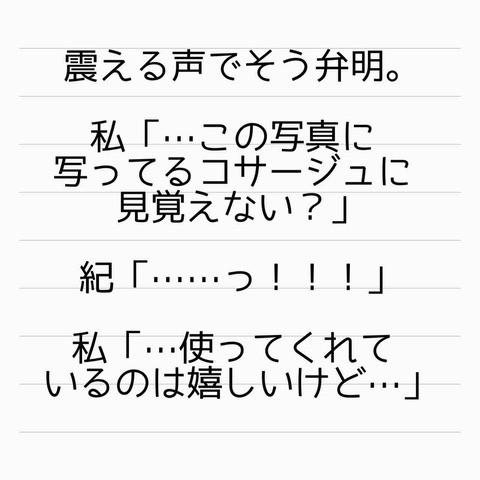 震える声でそう弁明。
私「…この写真に
写ってるコサージュに
見覚えない？」
紀「……っ！！！」
私「…使ってくれて
いるのは嬉しいけど…」